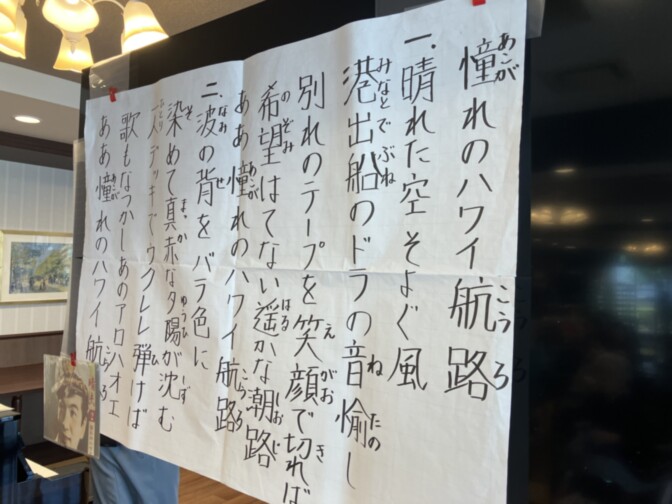 憧れのハワイ航路
一、晴れた空 そよぐ風
港出船のドラの音愉し
別れのテープを笑顔で切れば
希望はてない遥かな潮路
ああ憧れのハワイ航路
二、波の背をバラ色に
染めて真赤な夕陽が沈む
一人デッキでウクレレ弾けば
歌もなつかしあのアロハオエ
ああ憧れのハワイ航路